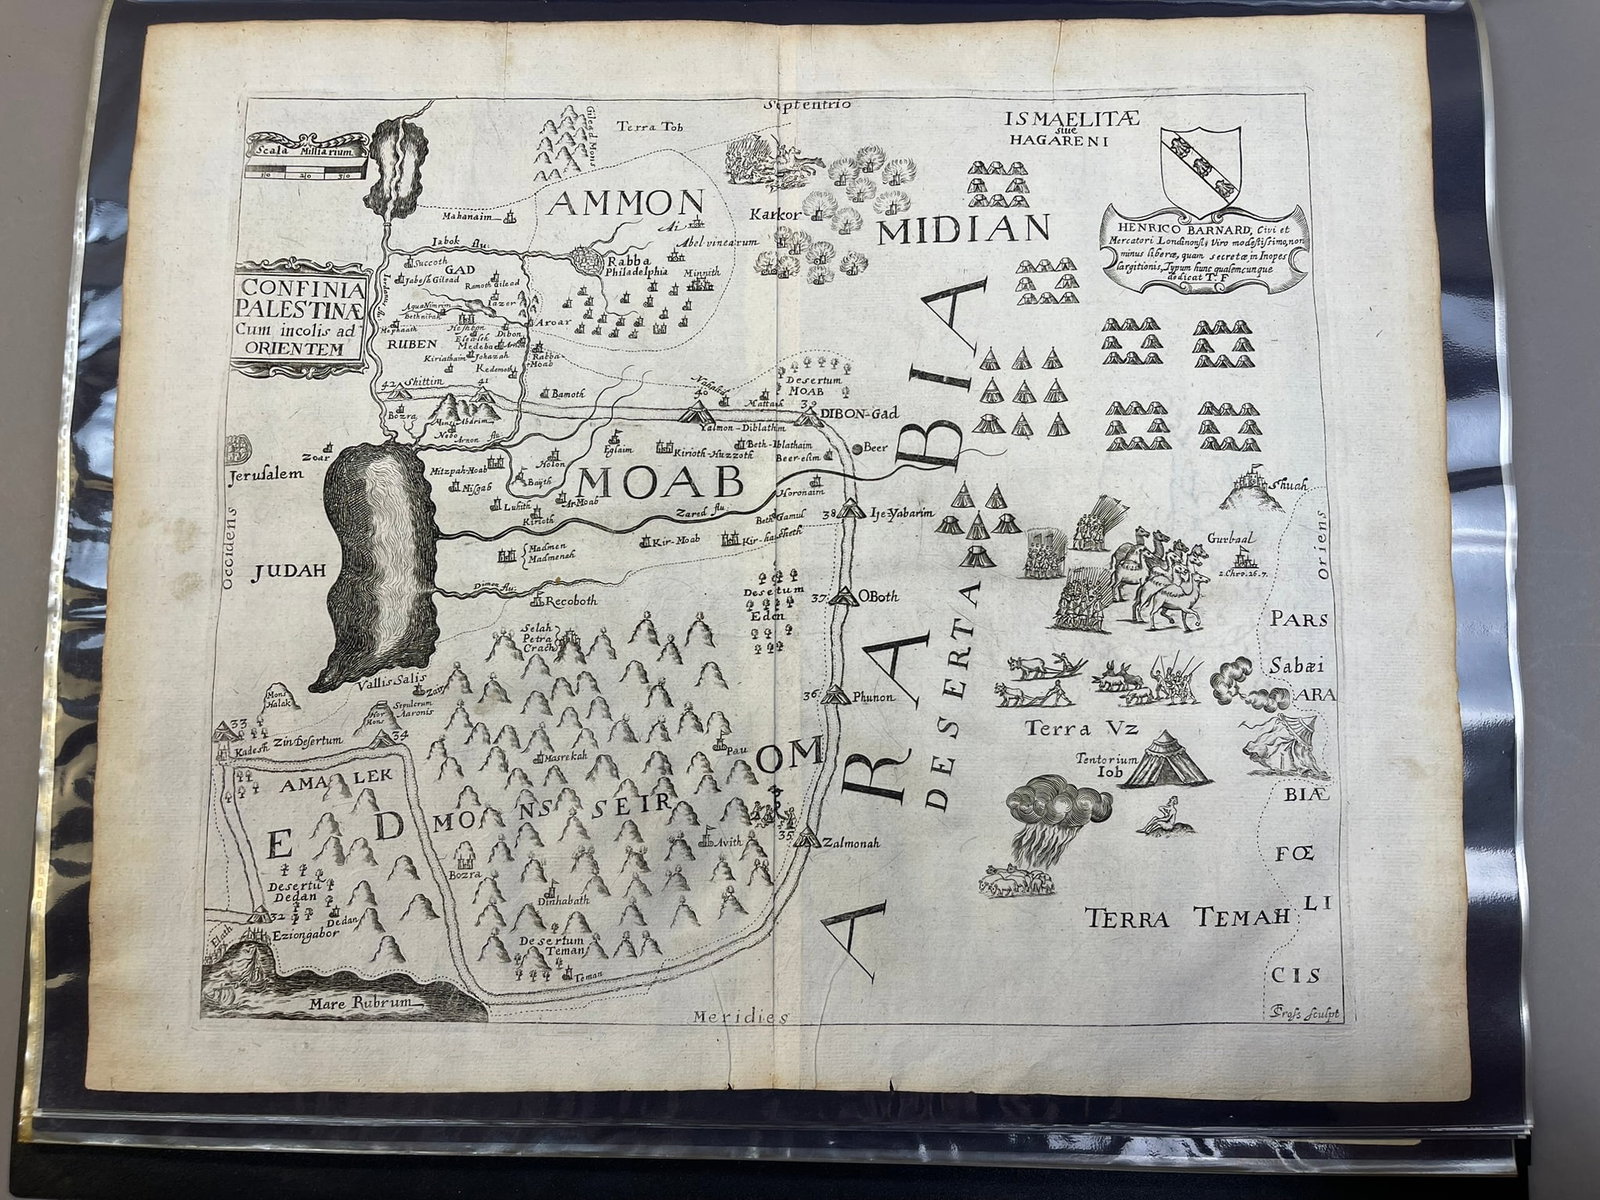 Septentrio
Scala Milliarium
10 20 30
Gilead Mons
Terra Tob
ISMAELITÆ
siue
HAGARENI
HENRICO BARNARD, Civi et
Mercatori Londinonsi, Viro modestissimo, non
minus liberæ, quam secretæ in Inopes
largitionis, Typum hunc qualemcunque
dedicat T. F
CONFINIA
PALESTINÆ
Cum incolis ad
ORIENTEM
AMMON
Mahanaim
Karkor
MIDIAN
Ai
Abel vinearum
Iabok flu:
Rabba
Philadelphia
Minnith
Succoth
GAD
Jabesh Gilead
Ramoth Gilead
Iazer
Aqua Nimrim
Aroar
Heshbon
Elealeh
Dibon
RUBEN
Medeba
Kiriathaim
Jahazah
Rabba
Moab
Kedemoth
42 Shittim
41
Bamoth
Nahaliel
40
Mattanah
Desertum
MOAB
39
DIBON-Gad
Yalmon-Diblathim
Bozra
Mins Abarim
Nebo
Arnon flu:
Jerusalem
Zoar
Eglaim
Kirioth-Huzzoth
Beth-Iblathaim
Beer-elim
Beer
Mitzpah-Moab
Holon
MOAB
Misgab
Bajith
Luhith
Ar-Moab
Kirioth
Zared flu:
Horonaim
Beth Gamul
38
Ije-Yabarim
Kir-Moab
Kir-hareseth
Madmen
Madmenah
Shuah
Gurbaal
2.Chro.26.7.
Occidens
Oriens
JUDAH
Dimon flu:
Recoboth
Desertum
Eden
37
OBoth
Selah
Petra
Crach
Vallis Salis
Zair
Mons
Halak
Hor
Mons
Sepulcrum
Aaronis
36
Phunon
33
Kadesh
Zin Desertum
34
Pau
Masrekah
AMALEK
EDOM
MONS SEIR
35
Zalmonah
Avith
Bozra
Dinhabath
Desertu
Dedan
Dedan
32
Eziongabor
Elath
Desertum
Teman
Teman
Mare Rubrum
Meridies
ARABIA
DESERTA
Terra Vz
Tentorium
Iob
TERRA TEMAH
PARS
Sabæi
ARA
BIÆ
FŒ
LI
CIS
Cross sculpt